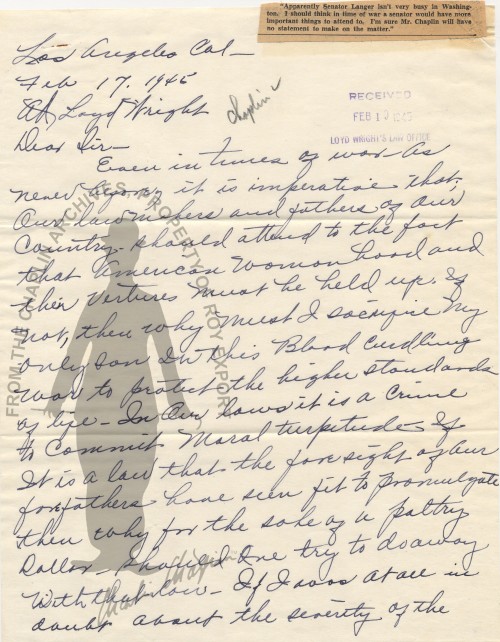 "Apparently Senator Langer isn't very busy in Washing-
ton. I should think in time of war a senator would have more
important things to attend to. I'm sure Mr. Chaplin will have
no statement to make on the matter."
Los Angeles Cal-
Feb 17. 1945
Chaplin
RECEIVED
FEB 19 1945
LOYD WRIGHT'S LAW OFFICE
Att Loyd Wright
Dear Sir-
Even in times of war as
never before it is imperative that
our law makers and fathers of our
Country- should attend to the fact
that American Womanhood and
their Vertures must be held up. If
not, then why must I sacrifice my
only son in this Blood Curdling
war to protect the higher standards
of life- In our laws it is a crime
to Commit Moral turpitude. If
It is a law that the foresight of our
forfathers have seen fit to promulgate
then why for the sake of a paltry
Dollar- should one try to do away
with that law- If I was at all in
doubt about the severity of the
FROM THE CHAPLIN ARCHIVES. PROPERTY OF ROY EXPORT
Charlie Chaplin